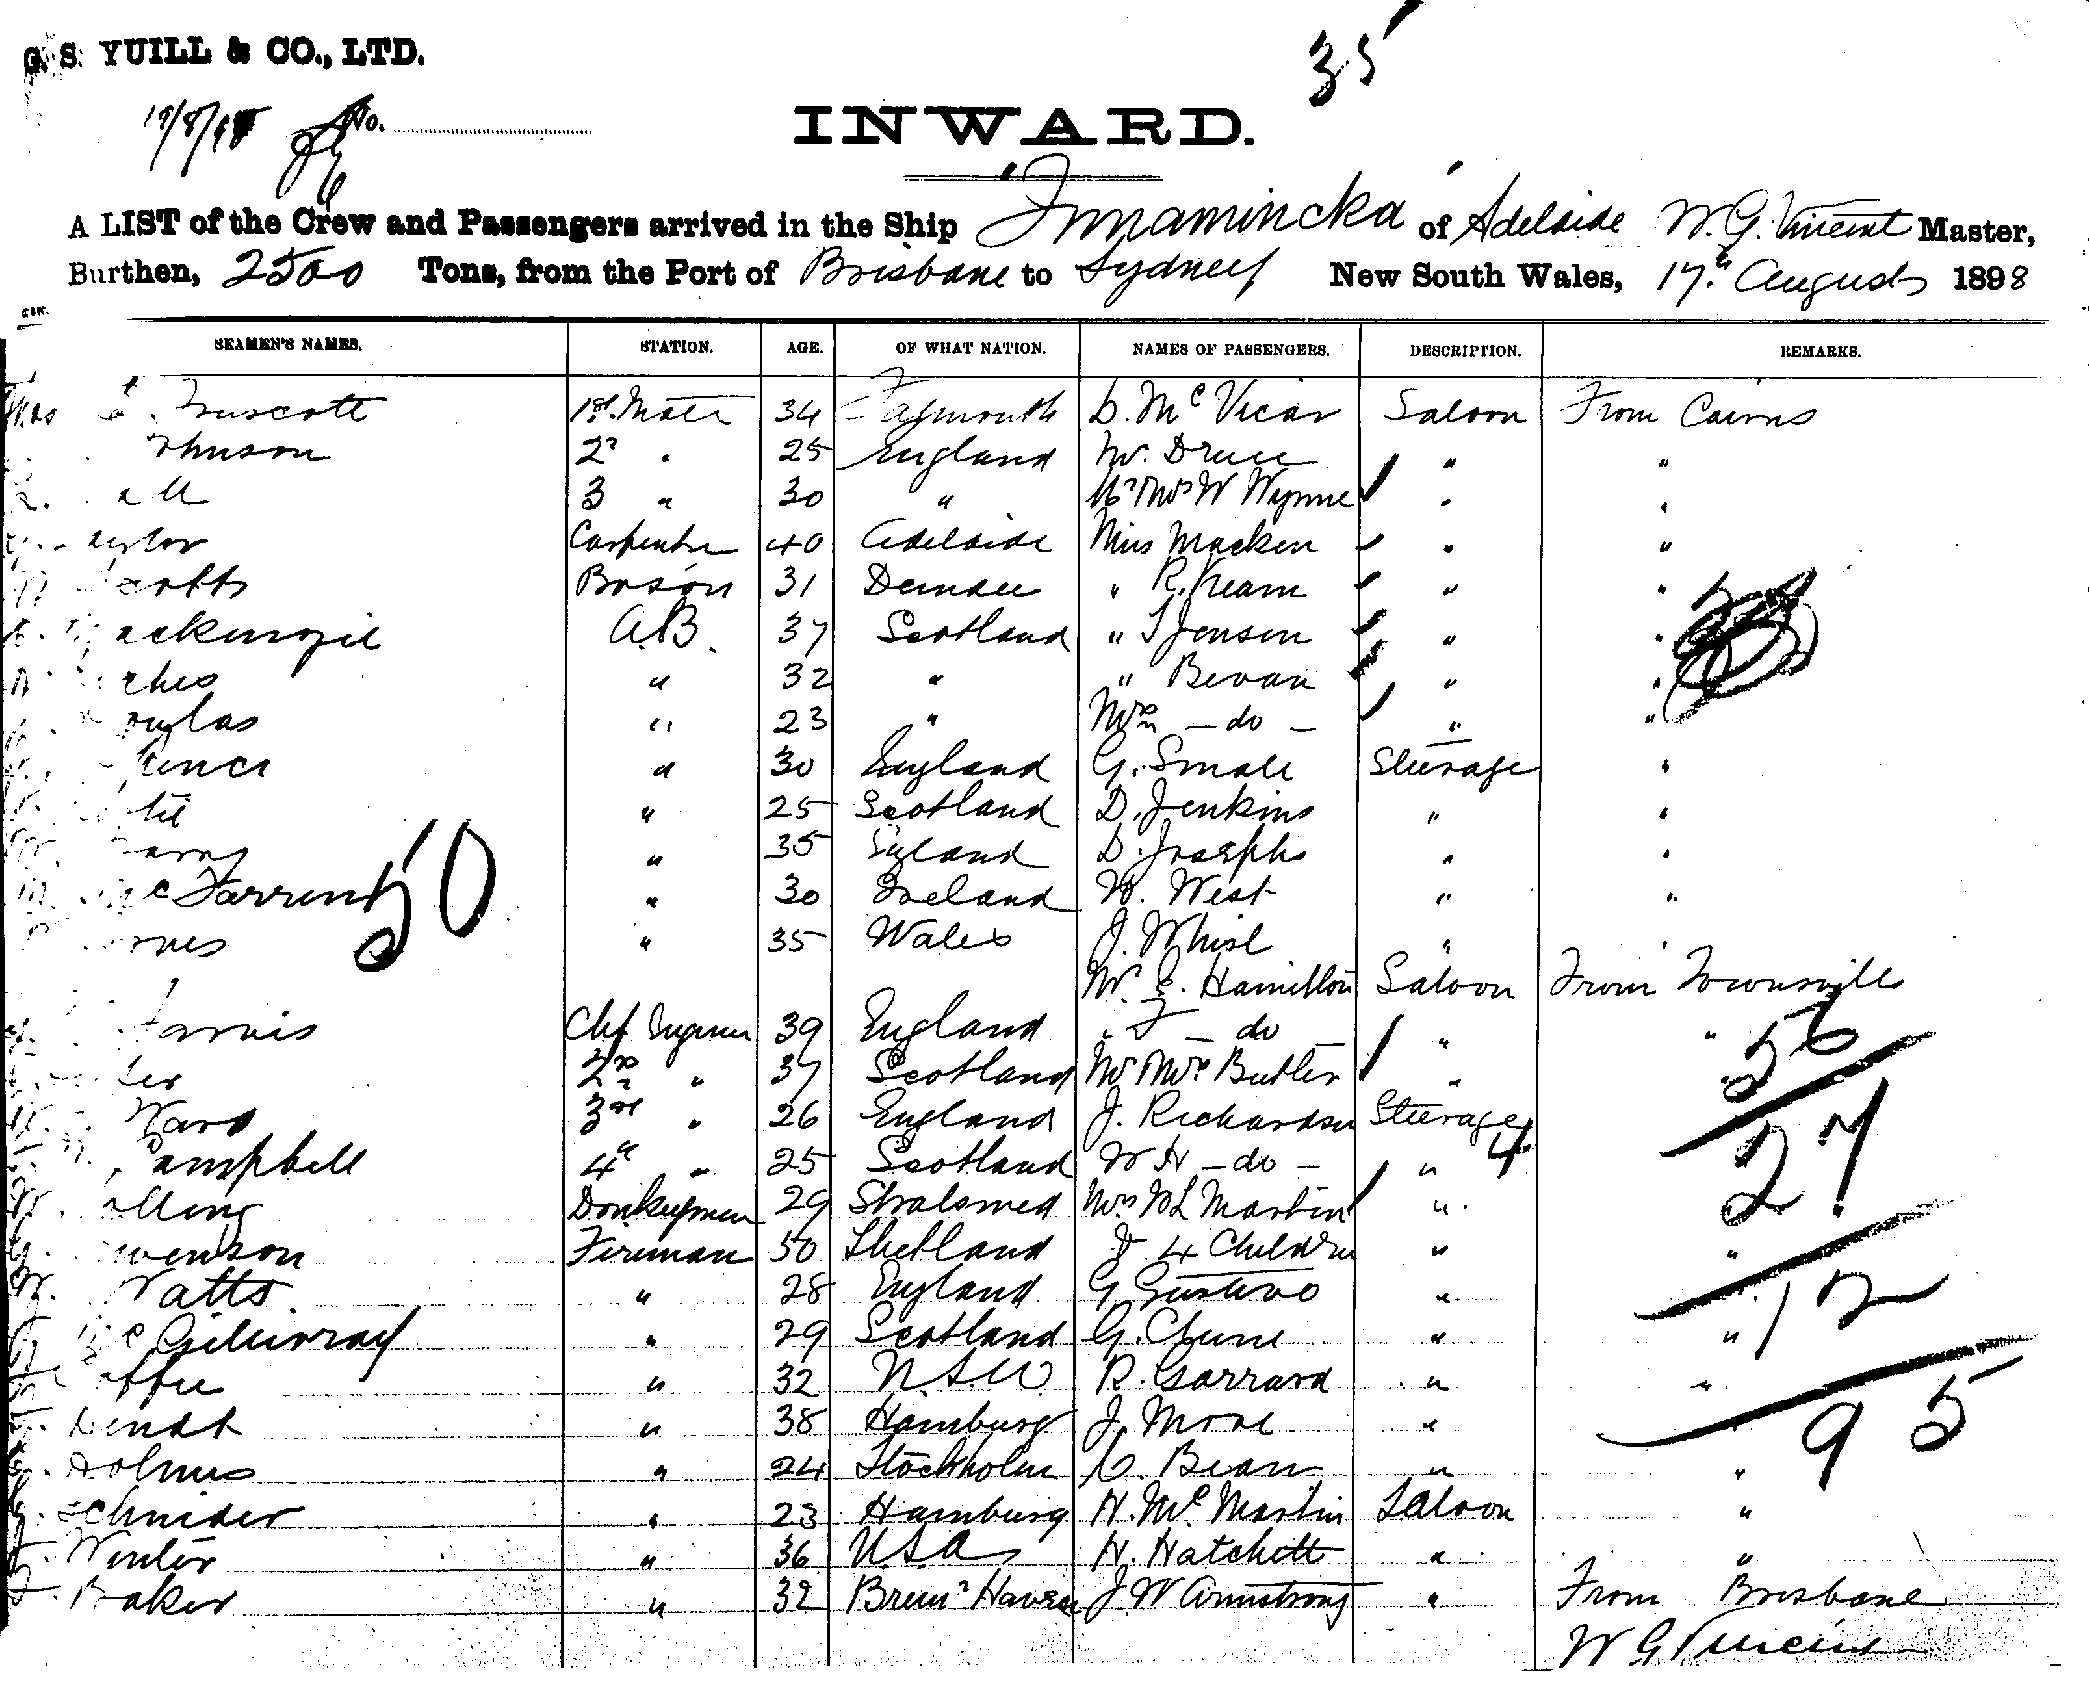 G. S. YUILL & CO., LTD.
35
19/8/98 No.
INWARD.
A LIST of the Crew and Passengers arrived in the Ship Innamincka of Adelaide W. G. Vincent Master,
Burthen, 2500 Tons, from the Port of Brisbane to Sydney New South Wales, 17th August 1898
SEAMEN'S NAMES. STATION. AGE. OF WHAT NATION. NAMES OF PASSENGERS. DESCRIPTION. REMARKS.
Truscott 1st Mate 34 Falmouth D. McVicar Saloon From Cairns
ohnson 2 " 25 England Mr. Druce " "
3 " 30 " Mr & Mrs W Wynne " "
aylor Carpenter 40 Adelaide Miss Macken " "
cotts Boson 31 Dundee " R. Kearn " "
ackenzie A.B. 37 Scotland " T Jensen " "
ches " 32 " " Bevan " "
ouglas " 23 " Mrs - do - " "
" 30 England G. Small Steerage "
" 25 Scotland D. Jenkins " "
" 35 England D. Josephs " "
Mc Farren " 30 Ireland W. West " "
50
" 35 Wales J. Whisl " "
Mr. E. Hamilton Saloon From Townsville
Jarvis Chf Engineer 39 England " F - do - " "
2nd " 37 Scotland Mr & Mrs Butler "
56
Ward 3rd " 26 England J. Richardson Steerage
Campbell 4th " 25 Scotland W H - do - " 4
27
olling Donkeyman 29 Stralsund Mrs W L Martin "
wenson Fireman 50 Shetland & 4 Children " "
Watts " 28 England G Gustavo " "
12
Mc Gillivray " 29 Scotland G. Clune " "
" 32 N.S.W R. Garrard " "
95
endt " 38 Hamburg J. More "
Holmes " 24 Stockholm C. Bean " "
Schnider " 23 Hamburg H. McMartin Saloon "
Winter " 36 USA H. Hatchett " "
Baker " 32 Brem Haven J. W Armstrong " From Brisbane
W G Vincent